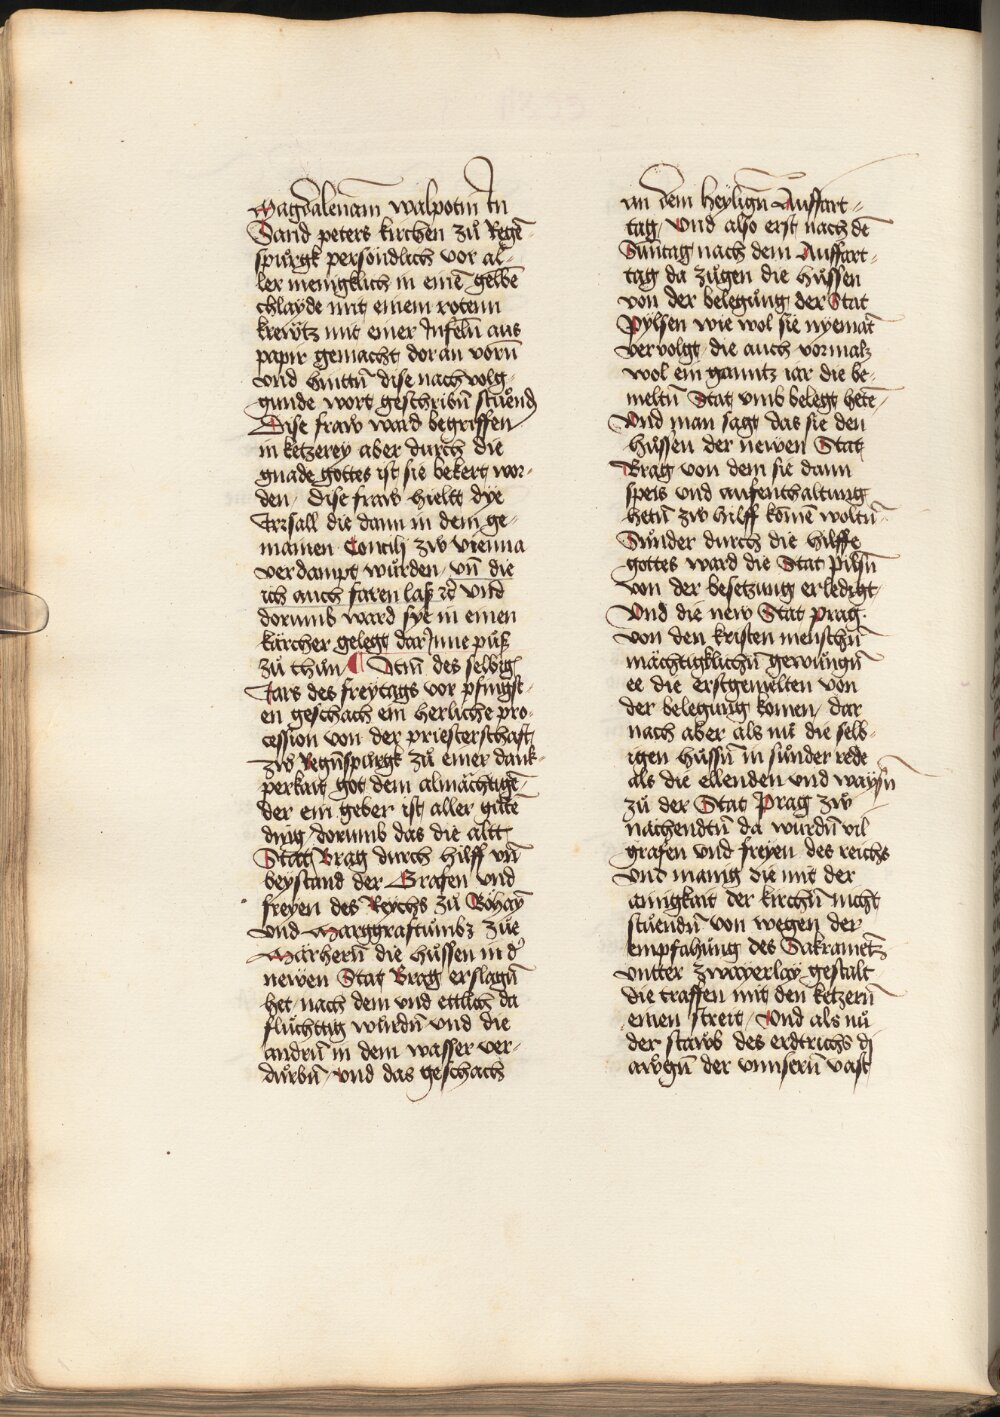 Magdalenam walpotin in
Sand peters kirchen zů Regē-
spůrgk persöndlich vor al-
ler menigklich in einē gelbē
chlayde mit einem rotenn
krewtz mit einer Infeln̄ aus
papir gemacht doran vorn̄
vnd hintn̄ dise nach volg-
gunde wort geschribn̄ stůend
Dise fraw ward begriffen
in ketzerey aber durch die
gnade gottes ist sie bekert wor-
den / Dise fraw hieltt dye
Irrsall die dann in dem ge-
mainen Concilj zw vienna
verdampt wůrden / vn̄ die
ich auch faren laß ꝛc̄ vnd
dorumb ward sye in einen
kärcher gelegt dar Inne půß
zů thůn ¶ Itm̄ des selbign̄
Iars des freytags vor pfingst-
en geschach ein herliche pro-
cession von der priesterschaft
zw Regn̄spůrgk zů einer dank-
perkait got dem almächtigē
der ein geber ist aller gůtē
ding / dorumb das die altt
Stat Brag durch hilff vn̄
beystand der Grafen vnd
freyen des Reychs zů Böhaȳ
vnd Marggraftůmbs zůe
Märhern̄ die hůssen in d'
newen Stat Brag erslagn̄
het / nach dem vnd ettlich da
flůchttig wůrdn̄ vnd die
andrn̄ in dem wasser ver-
důrbn̄ / vnd das geschach
an dem heylign̄ Auffart-
tag / Vnd also erst nach dē
Sůntag nach dem Auffart-
tag da zůgen die hůssen
von der belegůng der Stat
Pylsen wie wol sie nyemāt
vervolgt / die auch vormalz
wol ein ganntz iar die be-
meltn̄ Stat vmb belegt hetē /
Vnd man sagt das sie den
hůssen der newen Stat
Brag von dem sie dann
speis vnd aufenthaltung
hetn̄ zw hilff kömē woltn̄
Sůnder durch die hilffe
gottes ward die Stat Pilsn̄
von der besetzung erledigt /
Vnd die new Stat prag
von den kristen menschn̄
mächtigklichn̄ gewůngn̄
ee die erstgemelten von
der belegůng komen / dar
nach aber als nů die selb-
igen hůssn̄ in sůnder rede
als die ellenden vnd waysn̄
zů der Stat Prag zw
nachendtn̄ da wurdn̄ vil
grafen vnd freyen des reichs
vnd manig die mit der
ainigkait der kirchn̄ nicht
stůendn̄ von wegen der
empfahůng des Sakramētz
vntter zwayerlay gestalt
die traffen mit den ketzern̄
einen streit / Vnd als nů
der stawb des erdtrichs dj
awgn̄ der vnnsern̄ vast